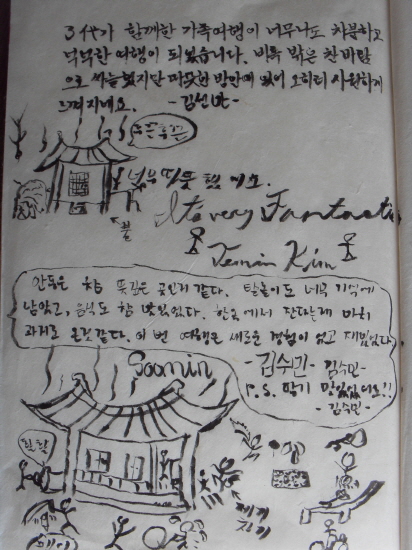 3代가 함께한 가족여행이 너무나도 차분하고
넉넉한 여행이 되었습니다. 비록 밖은 찬바람
으로 싸늘했지만 따뜻한 방안에 있어 오히려 시원하게
느껴지네요. -김선만-
후끈후끈
너무 따뜻했에요.
불
It's very Fantastic
Jemin Kim
안동은 참 뜻깊은 곳인거 같다. 탈놀이도 너무 기억에
남았고, 음식도 참 맛있었다. 한옥에서 잔다는게 마치
과거로 온것같다. 이번 여행은 새로운 경험이었고 재밌었다
-김수민- 김수민-
P.S. 딸기 맛있었네요?!
-김수민-
Soomin
제기
차기